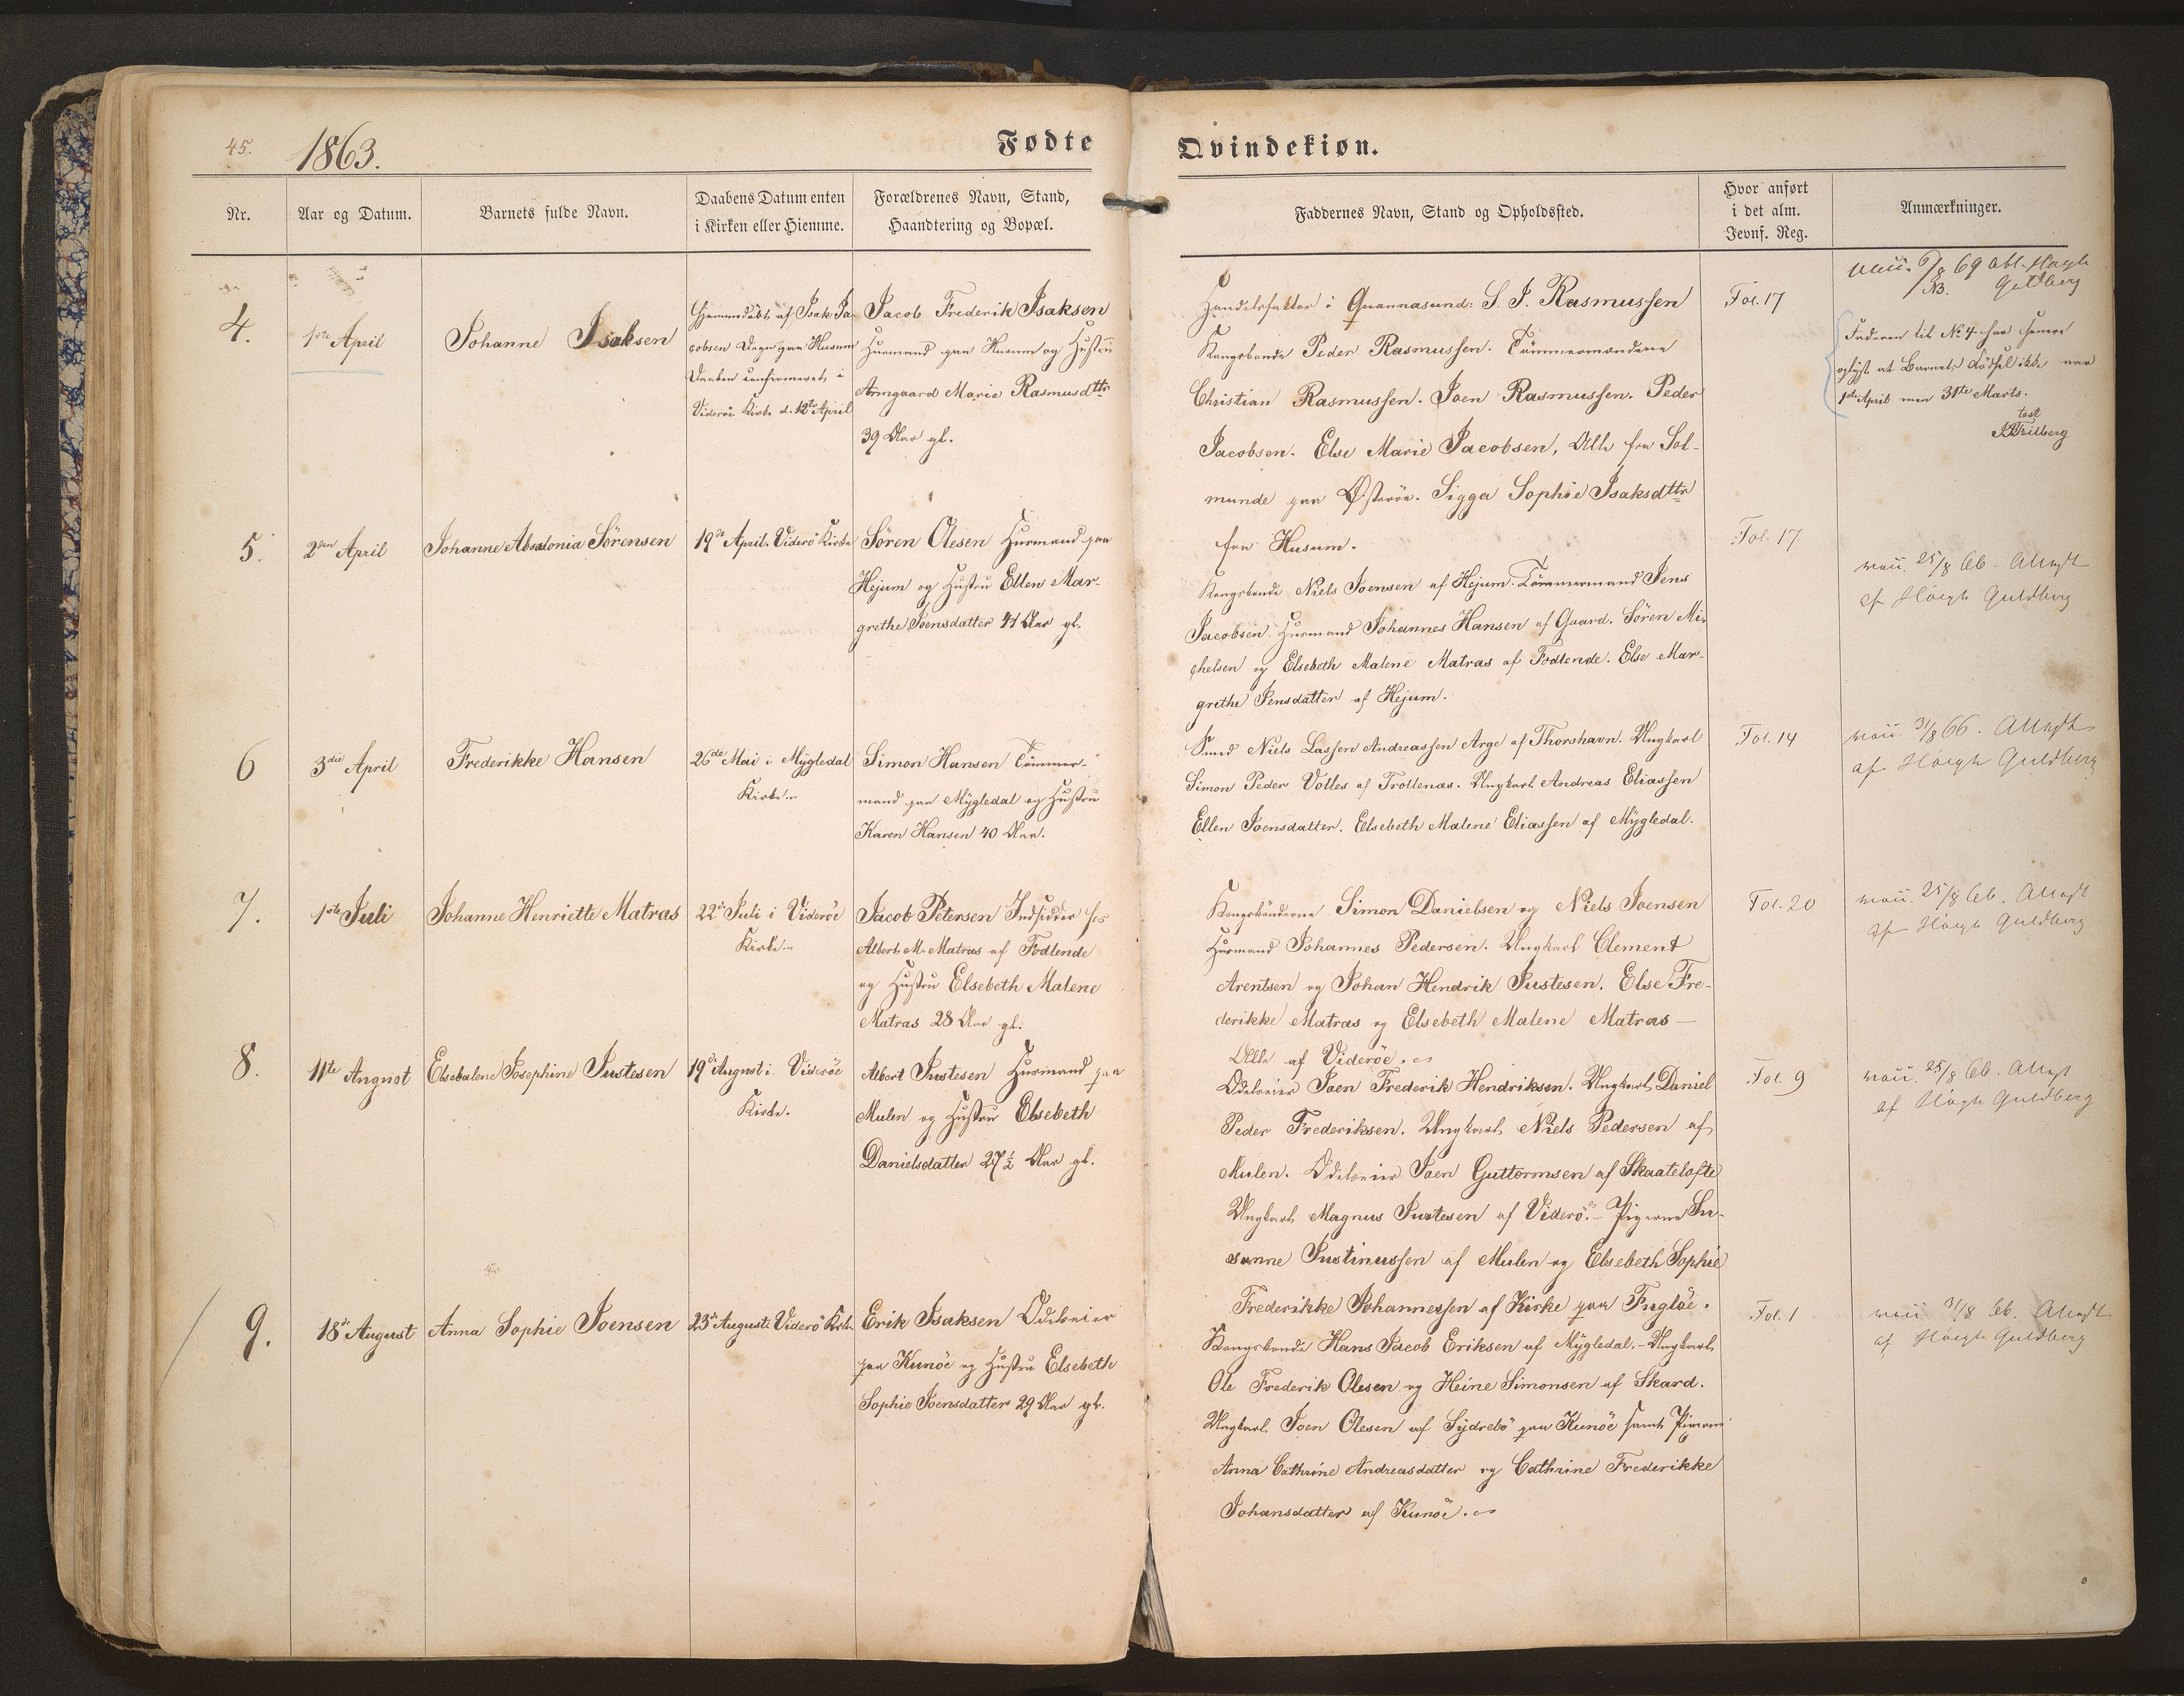 45. 1863. Fødte Qvindekiøn.
Nr.
Aar og Datum.
Barnets fulde Navn.
Daabens Datum enten
i Kirken eller Hiemme.
Forældrenes Navn, Stand,
Haandtering og Bopæl.
Faddernes Navn, Stand og Opholdssted.
Hvor anført
i det alm.
Jevnf. Reg.
Anmærkninger.
4.
1ste April
Johanne Isaksen
Hjemmedøbt af Isak Ja-
cobsen Degn paa Husum
Daaben confirmeret i
Viderøe Kirke d. 12te April
Jacob Frederik Isaksen
Huusmand paa Husum og Hustru
Armgaard Maria Rasmusdttr
39 Aar gl.
Handelsfaktor i Quannasund: S. J. Rasmussen
Kongsbonde Peder Rasmussen. Tømmermændene
Christian Rasmussen. Joen Rasmussen. Peder
Jacobsen. Else Marie Jacobsen, Alle fra Sol-
munde paa Østerøe. Sigga Sophie Isaksdttr
fra Husum.
Fol. 17
6/8 69 att. Høegh
NB. Guldberg
Faderen til No 4 har senere
oplyst at Barnets Fødsel ikke var
1ste April men 31te Marts.
test
5.
2den April
Johanne Absalonia Sørensen
19de April. Viderø Kirke
Søren Olesen Huusmand paa
Hejum og Hustru Ellen Mar-
grethe Joensdatter 41 Aar gl.
Kongsbonde Niels Joensen af Hejum. Tømmermand Jens
Jacobsen. Huusmand Johannes Hansen af Gaard. Søren Mi-
chelsen og Elsebeth Malene Matras af Fodlende. Else Mar-
grethe Jensdatter af Hejum.
Fol. 17
25/8 66. Attest
af Høegh Guldberg
6
3die April
Frederikke Hansen
26de Mai i Mygledal
Kirke
Simon Hansen Tømmer-
mand paa Mygledal og Hustru
Karen Hansen 40 Aar.
Smed Niels Lassen Andreassen Arge af Thorshavn. Ungkarl
Simon Peder Volles af Trollenas. Ungkarl Andreas Eliassen
Ellen Joensdatter. Elsebeth Malene Eliassen af Mygledal.
Fol. 14
31/8 66. Attest
af Høegh Guldberg
7.
1ste Juli
Johanne Henriette Matras
22de Juli i Viderøe
Kirke
Jacob Petersen Indsidder hos
Albert M. Matras af Fodlende
og Hustru Elsebeth Malene
Matras 28 Aar gl.
Kongsbønderne Simon Danielsen og Niels Joensen
Huusmand Johannes Pedersen. Ungkarl Clement
Arentsen og Johan Hendrik Justesen. Else Fre-
derikke Matras og Elsebeth Malene Matras —
Alle af Viderøe.
Fol. 20
25/8 66. Attest
af Høegh Guldberg
8.
11te August
Elsebalene Josephine Justesen
19de August i Viderøe
Kirke.
Albert Justesen Huusmand paa
Mulen og Hustru Elsebeth
Danielsdatter 27½ Aar gl.
Odelseier Joen Frederik Hendriksen. Ungkarl Daniel
Peder Frederiksen. Ungkarl Niels Pedersen af
Mulen. Odelseier Joen Guttormsen af Skaatelofte
Ungkarl Magnus Justesen af Viderø. – Pigerne Su-
sanne Justinussen af Mulen og Elsebeth Sophie
Frederikke Johannessen af Kirke paa Fugløe.
Fol. 9
25/8 66. Attest
af Høegh Guldberg
9.
18de August
Anna Sophie Joensen
23de August i Viderø Kirke
Erik Isaksen Odelseier
paa Kunøe og Hustru Elsebeth
Sophie Joensdatter 29 Aar gl.
Kongsbonde Hans Jacob Eriksen af Mygledal. – Ungkarl
Ole Frederik Olesen og Heine Simonsen af Skard.
Ungkarl Joen Olesen af Sydrebø paa Kunøe samt Pigerne
Anna Cathrine Andreasdatter og Cathrine Frederikke
Johansdatter af Kunøe.
Fol. 1
31/8 66. Attest
af Høegh Guldberg